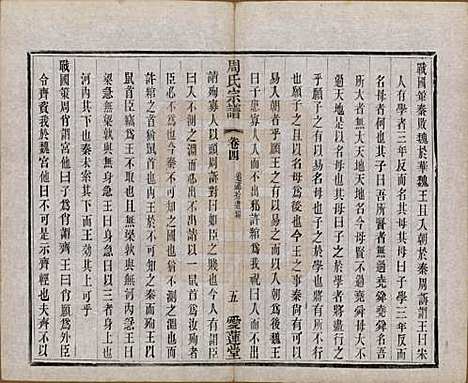 戰國策秦敗魏於華魏王且入朝於秦周訴謂王曰宋
人有學者三年反而名其母其母曰子學三年反而
名母者何也其子曰吾所賢者無過堯舜堯舜名吾
所大者無大天地天地名今母賢不過堯舜母大不
過天地是以名母也其母曰子之於學者將盡行之
乎願子之有以易名母也子之於學也將有所不行
也願子之且以名母爲後也今王之事秦尚有可以
易入朝者乎願王之有以易之而以入朝爲後魏王
曰子患寡人入而不出邪許綰爲我祝曰入而不出
周氏宗譜
卷四
五
愛蓮堂
請殉寡人以頭周訴對曰如臣之賤也今人有謂臣
曰入不測之淵而必出不出請以一鼠首爲汝殉者
臣必不爲也今秦不可知之國也猶不測之淵也而
許綰之首猶鼠首也內王於不可知之秦而殉王以
鼠首臣竊爲王不取也且無梁孰與無河內急王曰
梁急無梁孰與無身急王曰身急曰以三者身上也
河內其下也秦未索其下而王效其上可乎
戰國策周肖謂宮謂齊王曰肖願爲外臣
令齊資我於魏宮曰不可是示齊輕也夫齊不以